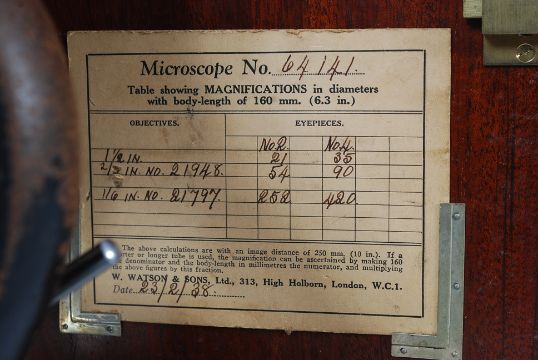 Microscope No. 64141.
Table showing MAGNIFICATIONS in diameters
with body-length of 160 mm. (6.3 in.)
OBJECTIVES. EYEPIECES.
No2. No4.
1½ IN. 21 35
2/3 IN. NO. 21948. 54 90
1/6 IN. NO. 21797. 252 420
The above calculations are with an image distance of 250 mm. (10 in.). If a
or longer tube is used, the magnification can be ascertained by making 160
denominator and the body-length in millimetres the numerator, and multiplying
the above figures by this fraction.
W. WATSON & SONS, Ltd., 313, High Holborn, London, W.C.1.
Date 23/2/38